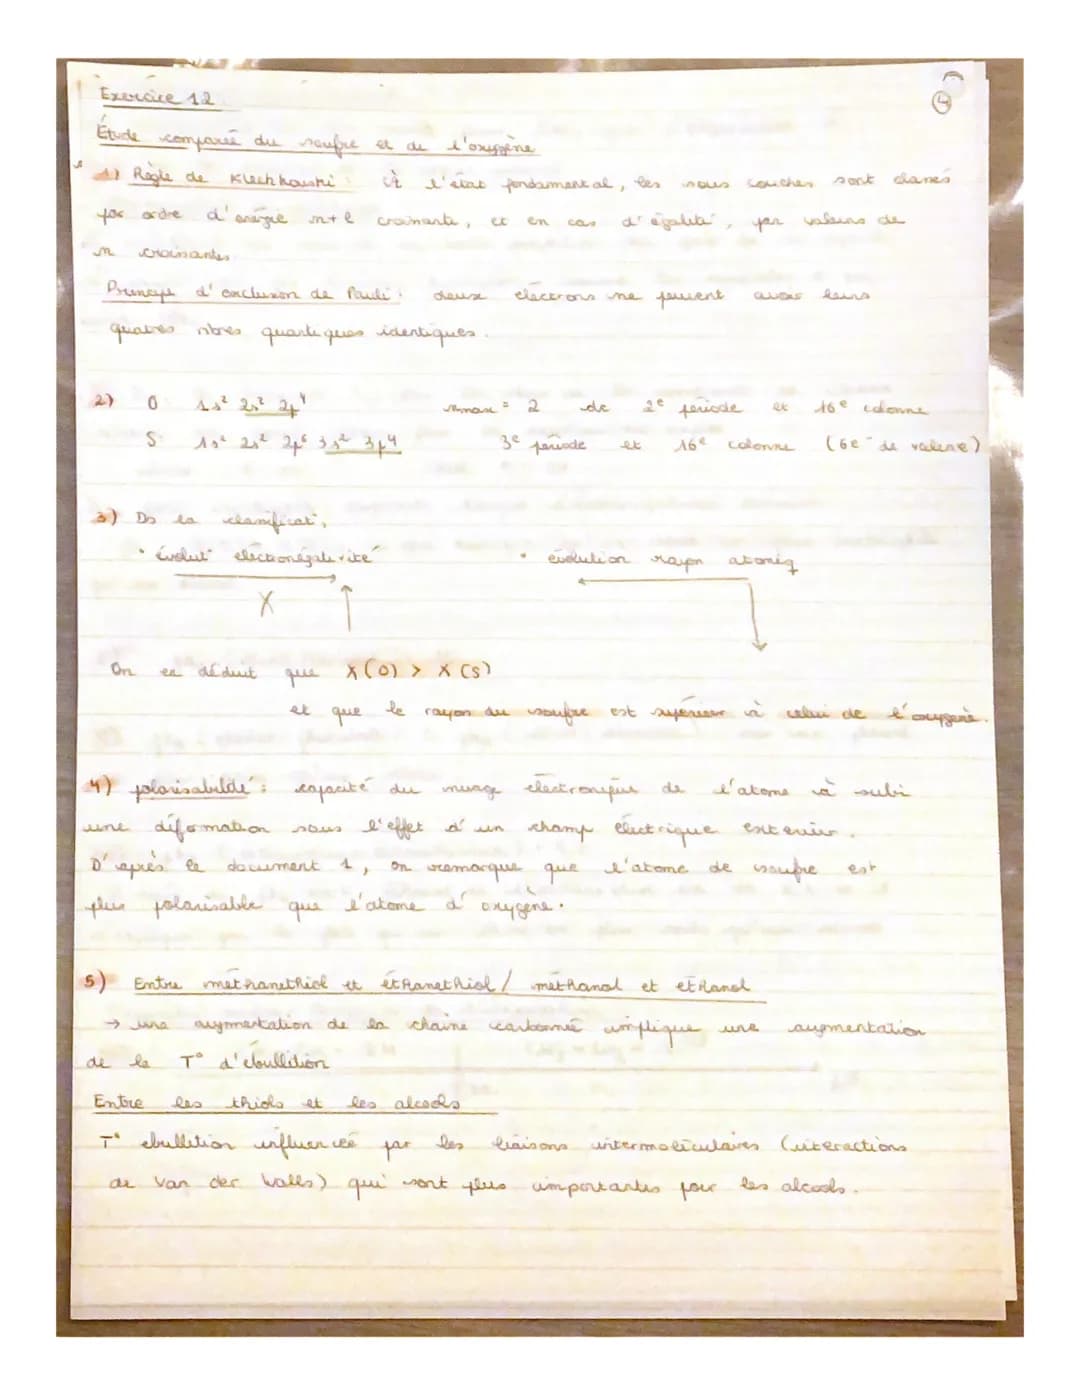 Exercice 12
4
Étude comparée du soufre et de l'oxygène
1) Règle de Klechkowski : À l'état fondamental, les sous couches sont classés
par ordre d'énergie n+l croissante, et en cas d'égalité, par valeurs de
n croissantes
Principe d'exclusion de Pauli : deux électrons ne peuvent avoir leurs
quatres nbres quantiques identiques.
2) O 1s² 2s² 2p⁴ nmax = 2 dc 2e période et 16e colonne
S 1s² 2s² 2p⁶ 3s² 3p⁴ 3e période et 16e colonne (6e⁻ de valence)
3) Ds la classificat°,
• évolut° électronégativité • évolution rayon atomiq
χ
On en déduit que χ(O) > χ(S)
et que le rayon du soufre est supérieur à celui de l'oxygène.
4) polarisabilité : capacité du nuage électronique de l'atome à subir
une déformation sous l'effet d'un champ électrique extérieur.
D'après le document 1, on remarque que l'atome de soufre est
plus polarisable que l'atome d'oxygène.
5) Entre méthanethiol et éthanethiol / méthanol et éthanol
→ une augmentation de la chaîne carbonnée implique une augmentation
de la T° d'ébullition
Entre les thiols et les alcools
T° ébullition influencée par les liaisons intermoléculaires (interactions
de Van der Walls) qui sont plus importantes pour les alcools.